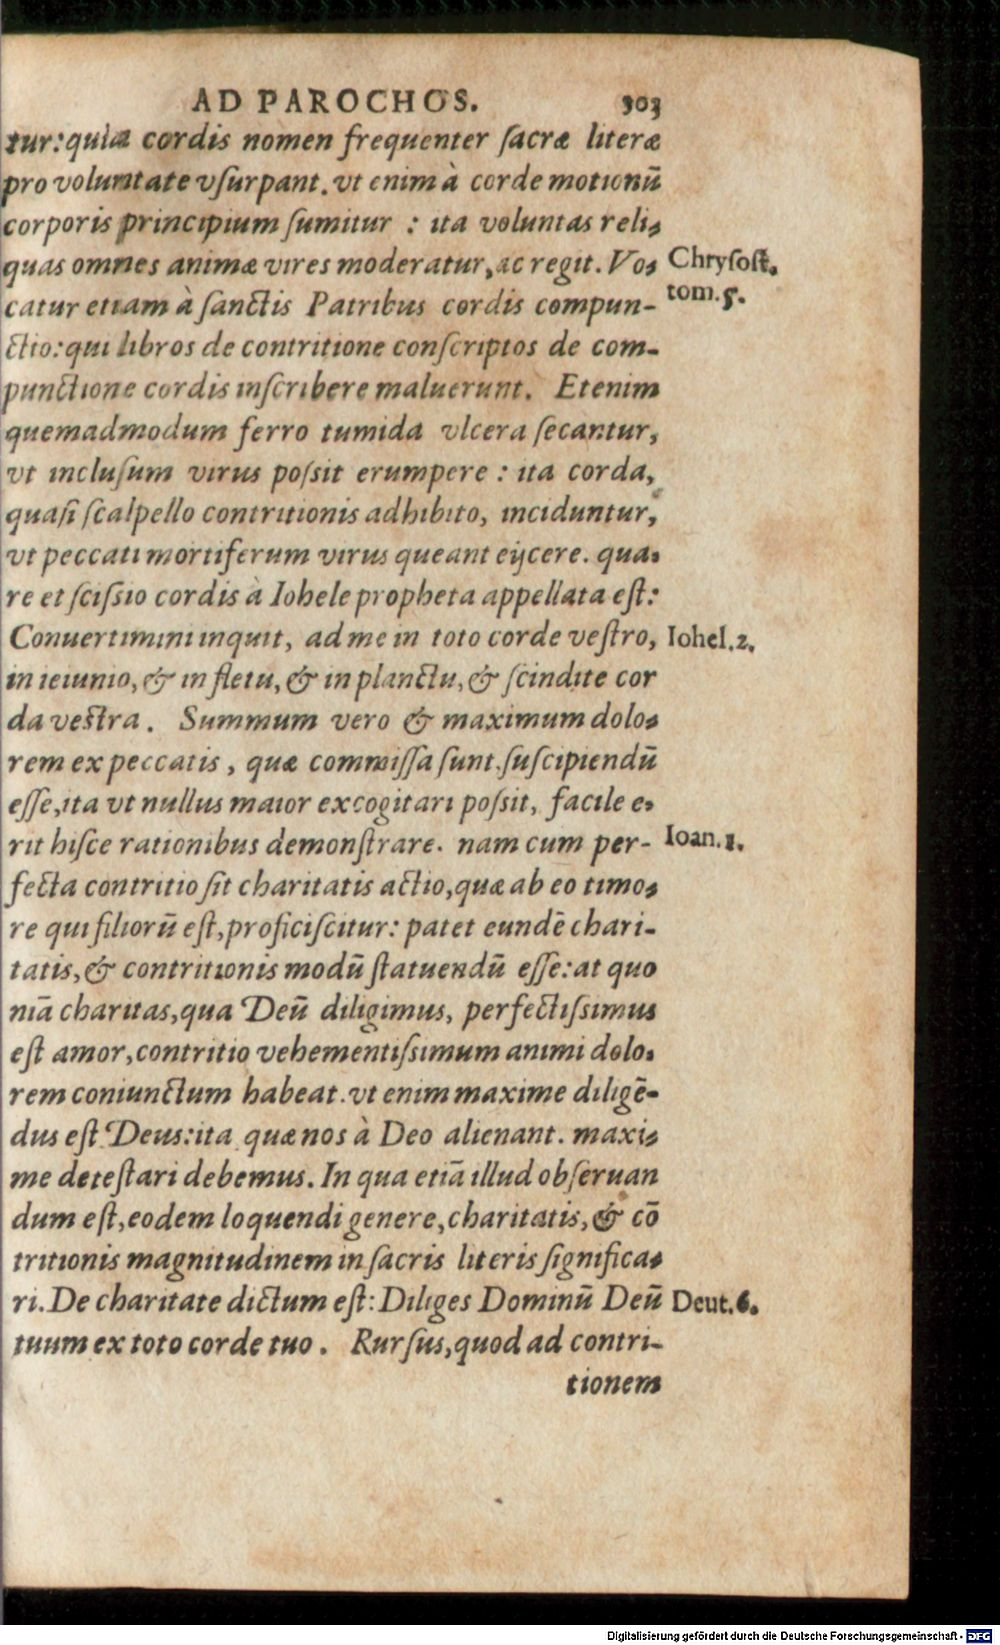 AD PAROCHOS. 303
tur: quia cordis nomen frequenter ſacræ literæ
pro voluntate vſurpant. vt enim à corde motionū
corporis principium ſumitur : ita voluntas reli-
quas omnes animæ vires moderatur, ac regit. Vo-
Chryſoſt.
tom. 5.
catur etiam à ſanctis Patribus cordis compun-
ctio: qui libros de contritione conſcriptos de com-
punctione cordis inſcribere maluerunt. Etenim
quemadmodum ferro tumida vlcera ſecantur,
vt incluſum virus poſsit erumpere : ita corda,
quaſi ſcalpello contritionis adhibito, inciduntur,
vt peccati mortiferum virus queant eijcere. qua-
re et ſciſsio cordis à Iohele propheta appellata eſt:
Conuertimini inquit, ad me in toto corde veſtro,
Iohel. 2.
in ieiunio, & in fletu, & in planctu, & ſcindite cor
da veſtra. Summum vero & maximum dolo-
rem ex peccatis, quæ commiſſa ſunt. ſuſcipiendū
eſſe, ita vt nullus maior excogitari poſsit, facile e-
rit hiſce rationibus demonſtrare. nam cum per-
Ioan. 1.
fecta contritio ſit charitatis actio, quæ ab eo timo-
re qui filiorū eſt, proficiſcitur: patet eundē chari-
tatis, & contritionis modū ſtatuendū eſſe: at quo
niā charitas, qua Deū diligimus, perfectiſsimus
eſt amor, contritio vehementiſsimum animi dolo-
rem coniunctum habeat. vt enim maxime diligē-
dus eſt Deus: ita quæ nos à Deo alienant. maxi-
me deteſtari debemus. In qua etiā illud obſeruan
dum eſt, eodem loquendi genere, charitatis, & cō
tritionis magnitudinem in ſacris literis ſignifica-
ri. De charitate dictum eſt: Diliges Dominū Deū
Deut. 6.
tuum ex toto corde tuo. Rurſus, quod ad contri-
tionem
Digitalisierung gefördert durch die Deutsche Forschungsgemeinschaft - DFG